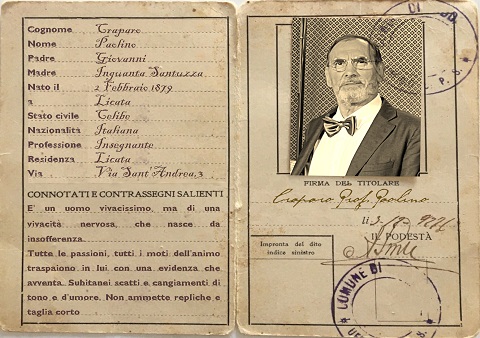 Cognome Craparo
Nome Paolino
Padre Giovanni
Madre Inguanta Santuzza
Nato il 2 Febbraio 1879
a Licata
Stato civile Celibe
Nazionalità Italiana
Professione Insegnante
Residenza Licata
Via Via Sant'Andrea, 3
CONNOTATI E CONTRASSEGNI SALIENTI
E' un uomo vivacissimo, ma di una
vivacità nervosa, che nasce da
insofferenza.
Tutte le passioni, tutti i moti dell'animo
traspaiono in lui con una evidenza che
avventa. Subitanei scatti e cangiamenti di
tono e d'umore. Non ammette repliche e
taglia corto
DI
P. S.
FIRMA DEL TITOLARE
Craparo Prof. Paolino
Il
IL PODESTÀ
Impronta del dito
indice sinistro
COMUNE DI